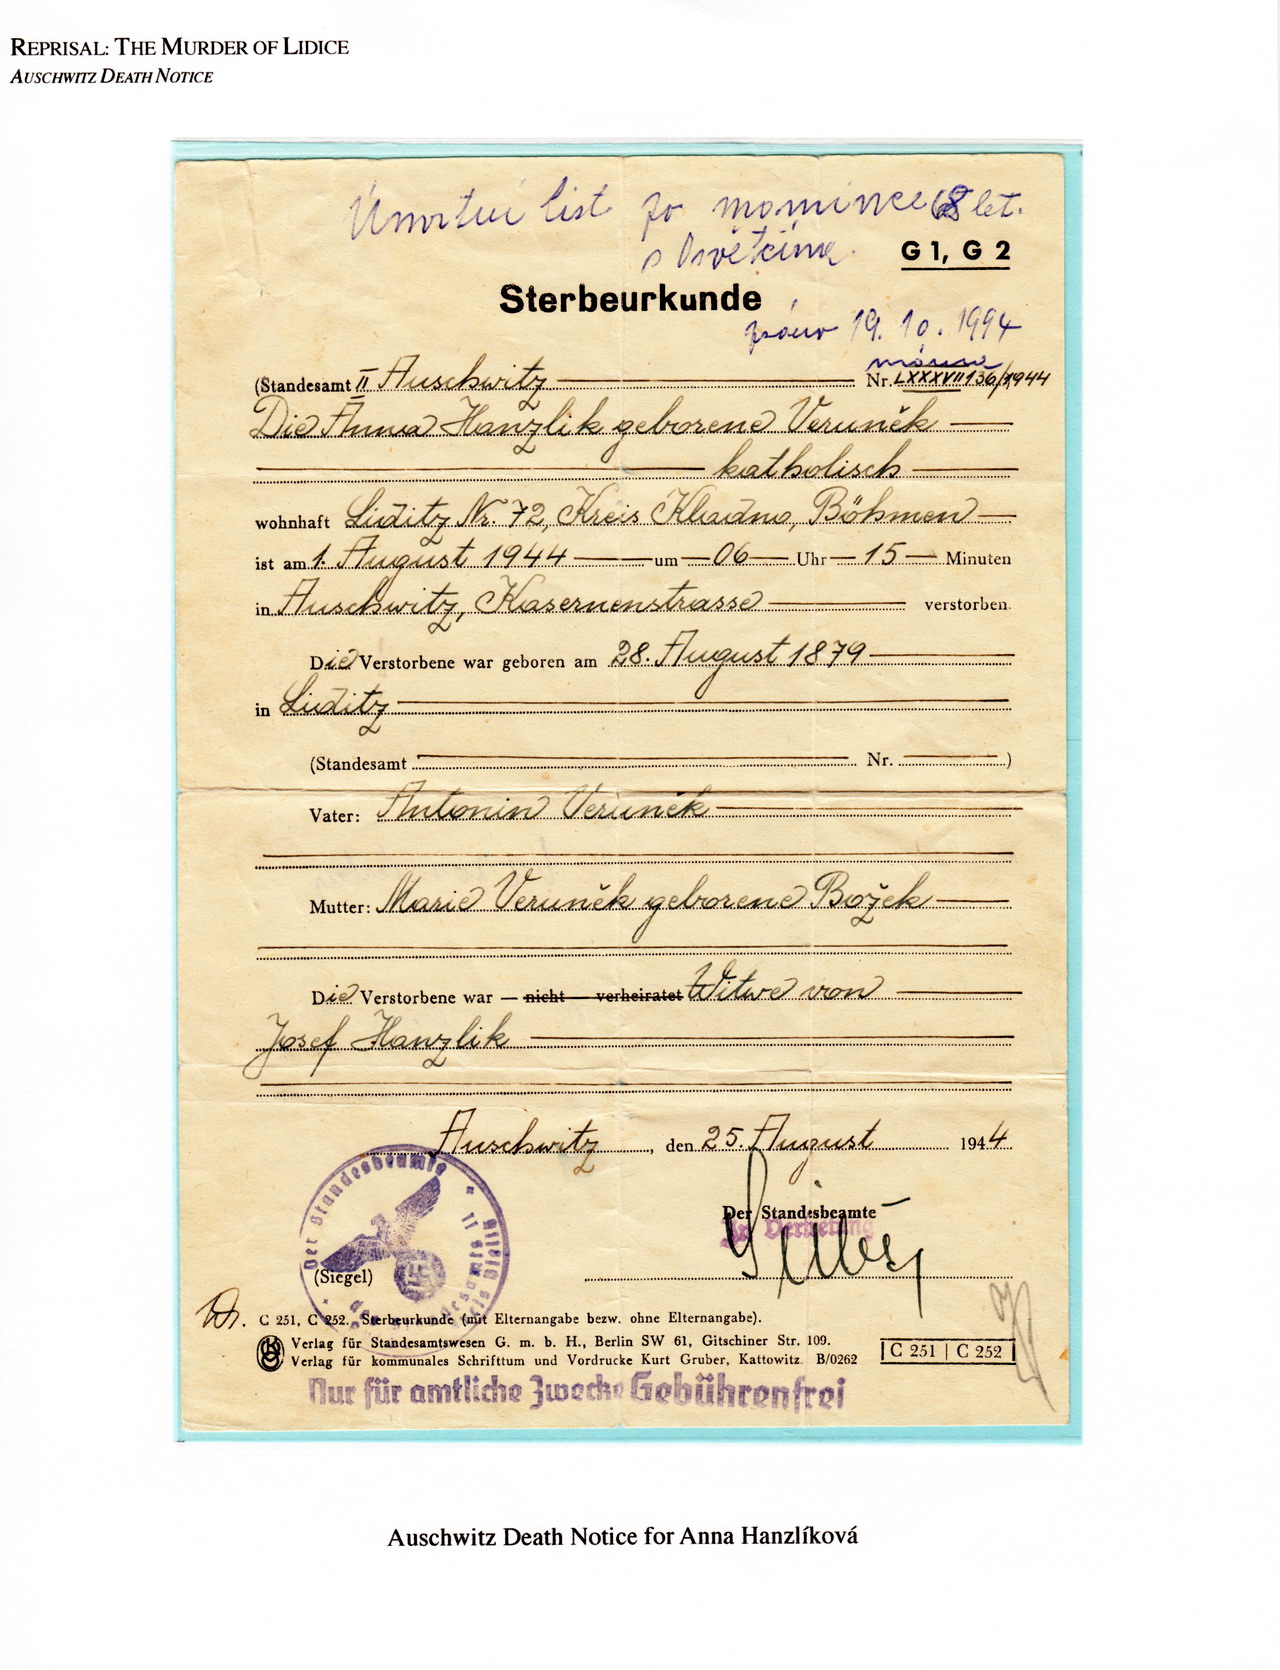 REPRISAL: THE MURDER OF LIDICE
AUSCHWITZ DEATH NOTICE
Úmrtní list po mamince 68 let.
z Osvětima
G 1, G 2
Sterbeurkunde
psáno 19. 10. 1994
(Standesamt II Auschwitz Nr. LXXXVII 136/1944
Die Anna Hanzlik geborene Veruněk
katholisch
wohnhaft Liditz Nr. 72, Kreis Kladno, Böhmen
ist am 1. August 1944 um 06 Uhr 15 Minuten
in Auschwitz, Kasernenstrasse verstorben.
Die Verstorbene war geboren am 28. August 1879
in Liditz
(Standesamt Nr. )
Vater: Antonin Veruněk
Mutter: Marie Veruněk geborene Božek
Die Verstorbene war — nicht — verheiratet Witwe von
Josef Hanzlik
Auschwitz, den 25. August 1944
Der Standesbeamte
Der Standesbeamte
In Vertretung
(Siegel)
C 251, C 252. Sterbeurkunde (mit Elternangabe bezw. ohne Elternangabe).
Verlag für Standesamtswesen G. m. b. H., Berlin SW 61, Gitschiner Str. 109.
Verlag für kommunales Schrifttum und Vordrucke Kurt Gruber, Kattowitz. B/0262
C 251 | C 252
Nur für amtliche Zwecke Gebührenfrei
Auschwitz Death Notice for Anna Hanzlíková